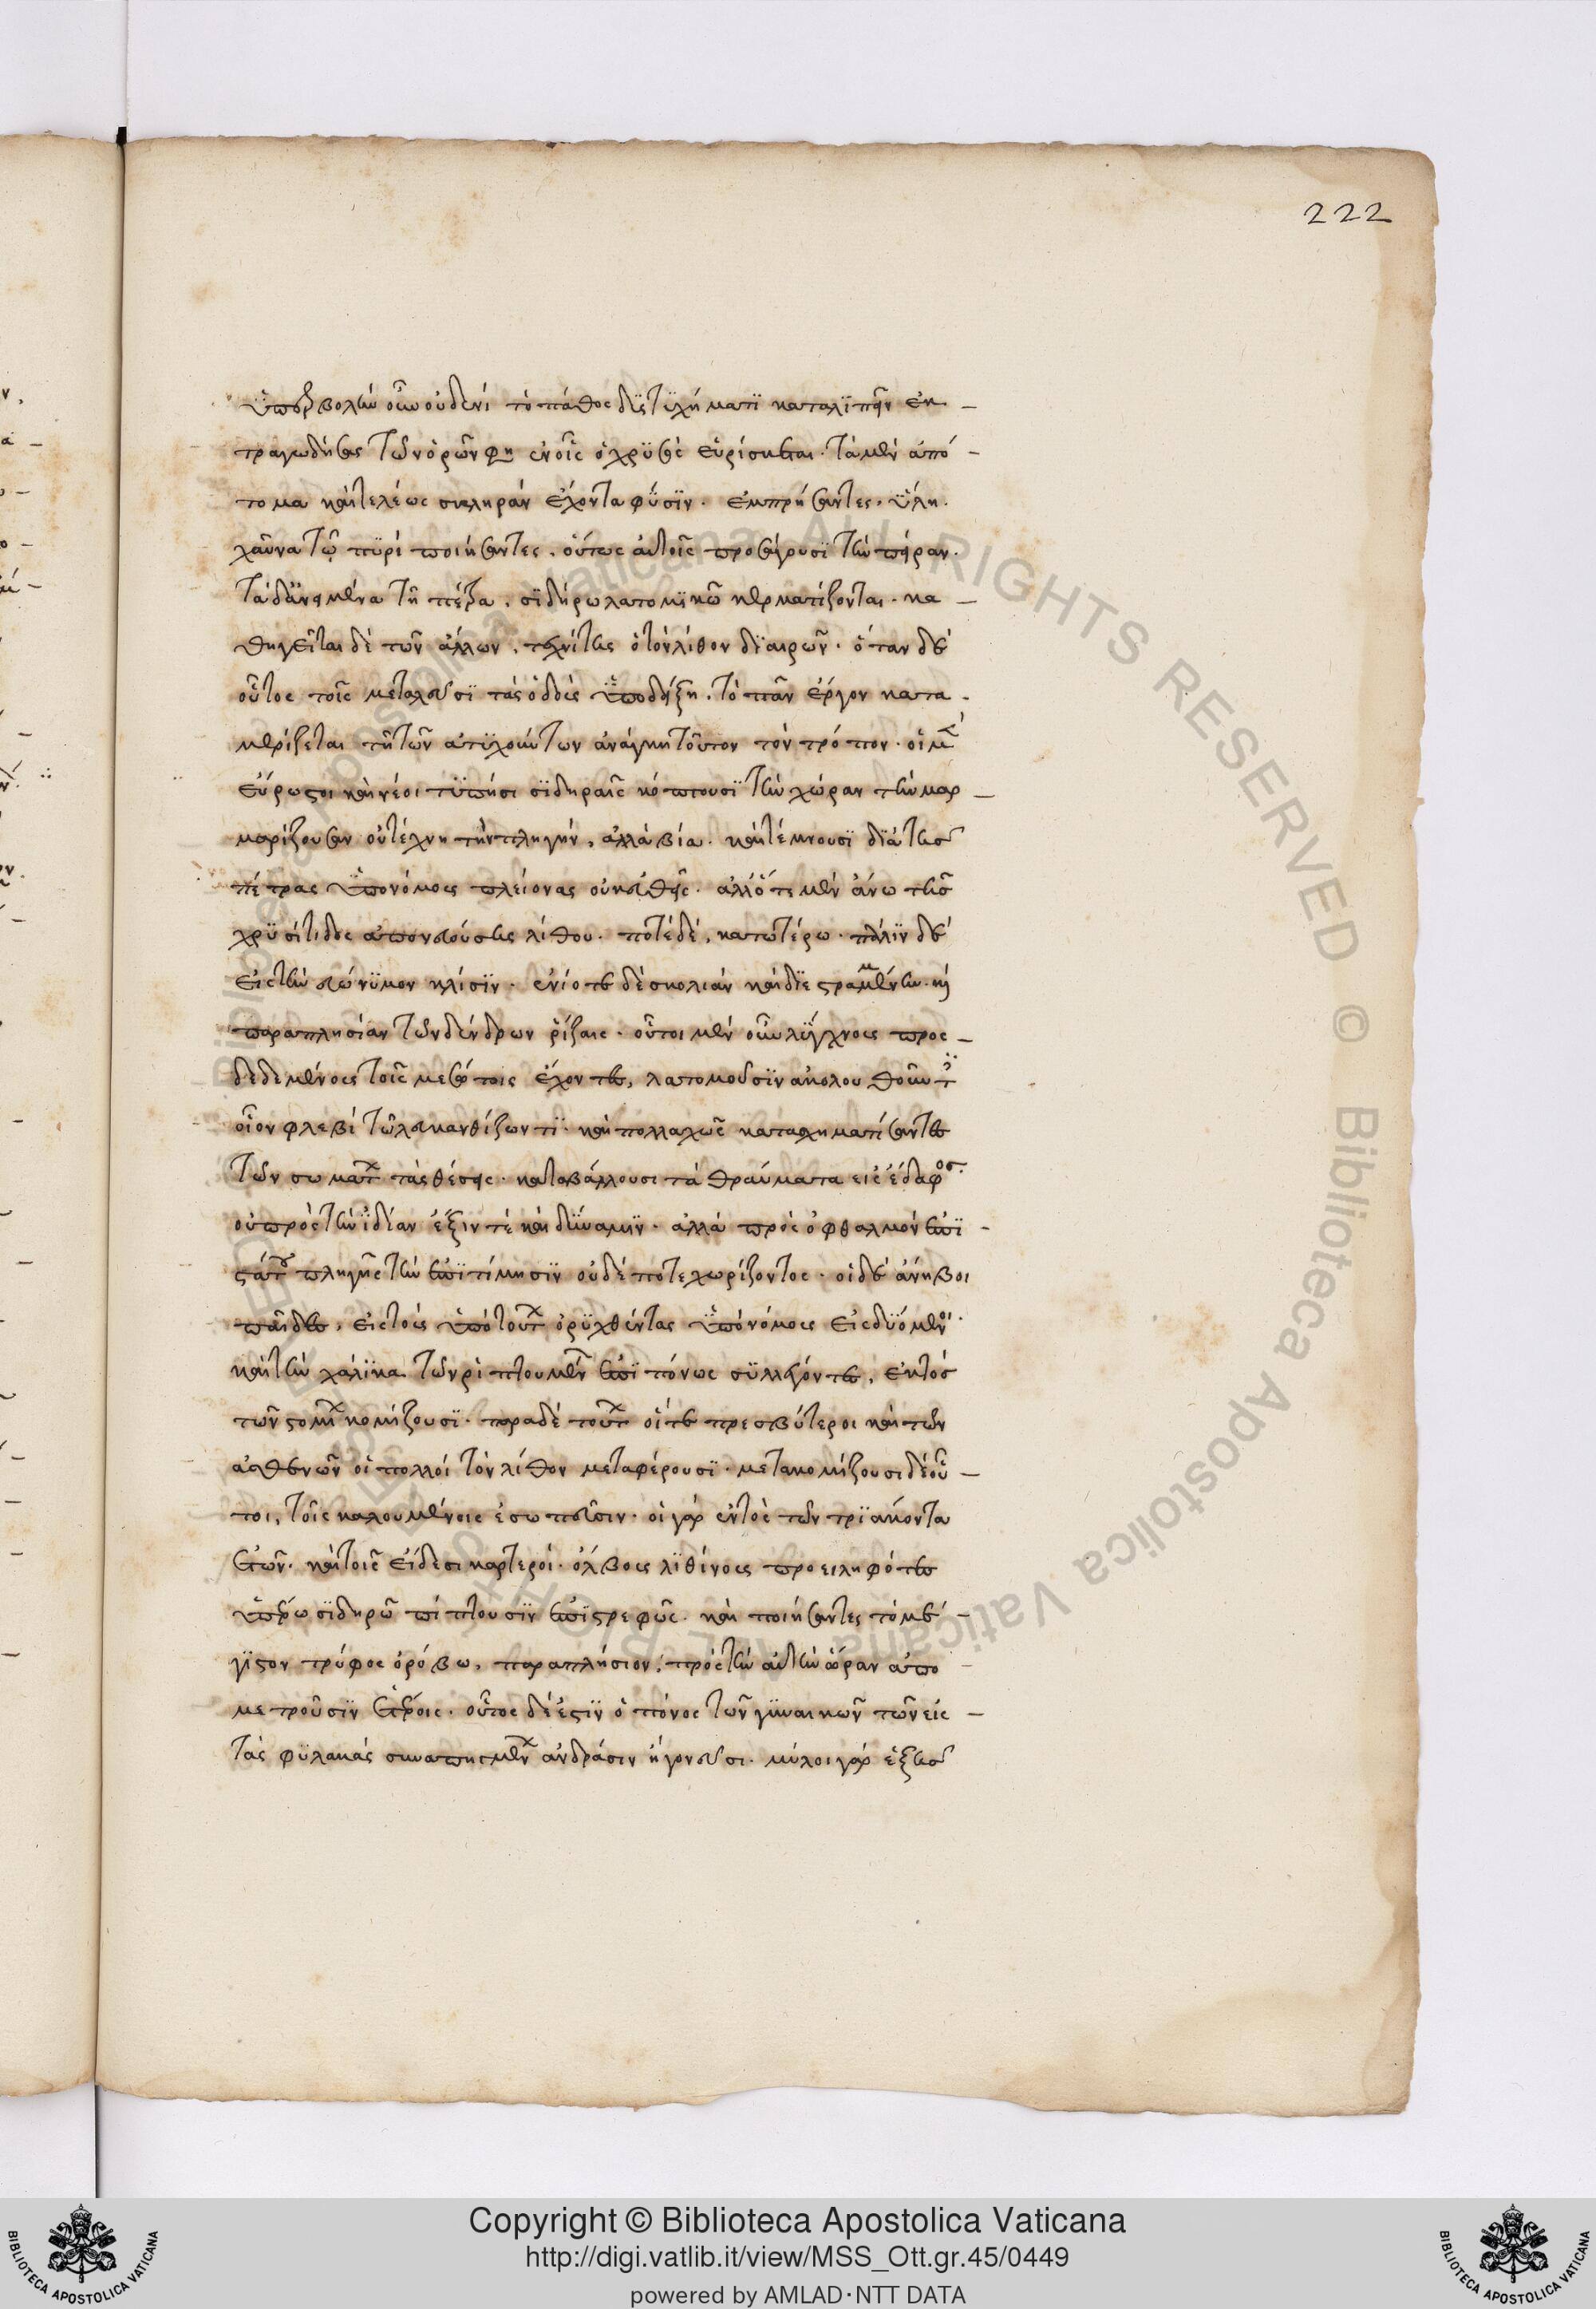 222
ὑπερβολὴν οὖν οὐδενὶ τὸ πάθος δυστυχήματι καταλιπεῖν ἐκ –
τραγωδήσας τῶν ὀρῶν φη ἐν οἷς ὁ χρυσὸς εὑρίσκεται. τὰ μὲν ἀπό –
τομα καὶ τελέως σκληρὰν ἔχοντα φύσιν. ἐμπρήσαντες, ὕλη.
χαῦνα τῷ πυρὶ ποιήσαντες, οὕτως αὐτοῖς προσάγουσι τὴν πεῖραν.
τὰ δ' ἀνειμένα τῆ πέτρα, σιδήρω λατομικῶ κερματίζονται. κα –
θηγεῖται δὲ τῶν ἄλλων, τεχνίτης ὁ τὸν λίθον διαιρῶν. ὅταν δὲ
οὗτος τοῖς μεταλλεῦσι τὰς ὁδοὺς ὑποδείξη, τὸ πᾶν ἔργον κατα –
μερίζεται τῆ τῶν ἀτυχούντων ἀνάγκη τοῦτον τὸν τρόπον. οἱ μὲν
εὔρωστοι καὶ νέοι τυπῆσι σιδηραῖς κόπτουσι τὴν χώραν τὴν μαρ –
μαρίζουσαν οὐ τέχνη τὴν πληγήν, ἀλλὰ βία. καὶ τέμνουσι διὰ τῆς
πέτρας ὑπονόμους πλείονας οὐκ εὐθεῖς. ἀλλ' ὁτὲ μὲν ἄνω τῆς
χρυσίτιδος ἀπονευούσης λίθου. ποτὲ δὲ, κατωτέρω. πάλιν δὲ
εἰς τὴν εὐώνυμον κλίσιν. ἐνίοτε δὲ σκολιὰν καὶ διεστραμμένην. καὶ
παραπλησίαν τῶν δένδρων ῥίζαις. οὗτοι μὲν οὖν λύχνους προς –
δεδεμένους τοῖς μετώποις ἔχοντες, λατομοῦσιν ἀκολουθοῦντες
οἷον φλεβὶ τῶ λευκανθίζωντι. καὶ πολλαχῶς κατασχηματίσαντες
τῶν σωμάτων τὰς θέσεις. καταβάλλουσι τὰ θραύματα εἰς ἔδαφος.
οὐ πρὸς τὴν ἰδίαν ἕξιν τὲ καὶ δύναμιν. ἀλλὰ πρὸς ὀφθαλμὸν ἐπι –
στάτου πληγῆς τὴν ἐπιτίμησιν οὐδέποτε χωρίζοντος. οἱ δὲ ἄνηβοι
παῖδες, εἰς τοὺς ὑπὸ τούτων ὀρυχθέντας ὑπονόμους εἰσδυόμενοι.
καὶ τὴν χάλικα τῶν ῥιπτουμένων ἐπιπόνως συλλεγόντες, ἐκτὸς
τῶν στομίων κομίζουσι. παρὰ δὲ τούτων οἵτε πρεσβύτεροι καὶ τῶν
ἀσθενῶν οἱ πολλοὶ τὸν λίθον μεταφέρουσι. μετακομίζουσι δὲ οὗ –
τοι, τοῖς καλουμένοις ἔσω ποῦσιν. οἱ γὰρ ἐντὸς τῶν τριάκοντα
ἐτῶν. καὶ τοῖς εἴδεσι καρτεροὶ. ὄλβους λιθίνους προειληφότες
ὑπέρω σιδηρῶ πίπτουσιν ἐπιστρεφῶς. καὶ ποιήσαντες τὸ μέ –
γιστον τρύφος ὀρόβω, παραπλήσιον, πρὸς τὴν αὐτὴν ὥραν ἀπο –
μετροῦσιν ἑτέροις. οὗτος δέ ἐστιν ὁ πόνος τῶν γυναικῶν τῶν εἰς –
τὰς φυλακὰς συναπηγμένων ἀνδράσιν ἢ γονεῦσι. μύλοι γὰρ ἑξῆς
Copyright © Biblioteca Apostolica Vaticana
http://digi.vatlib.it/view/MSS_Ott.gr.45/0449
powered by AMLAD·NTT DATA